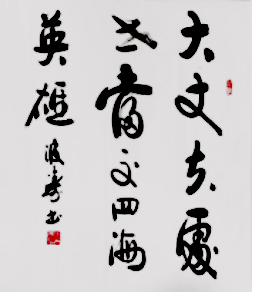 大丈夫處
世當交四海
英雄
波濤书